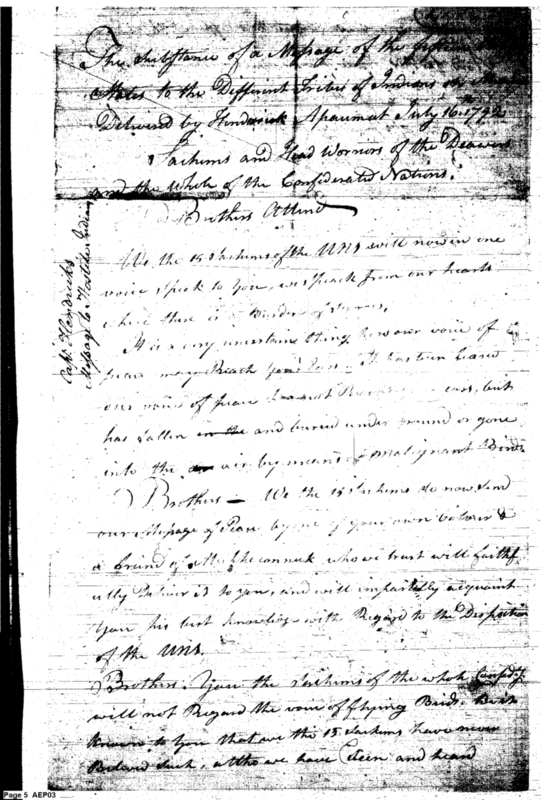 The Substance of a Message of the
States to the Different Tribes of Indians
Delivered by Hendrick Apaumut July 16th 1792
Sachems and Head Worriors of the
and the whole of the Confiderated Nations.
Brothers Attend
We the 15 Sachems of the UNS will now in one
voice speak to you, we speak from our hearts
where there is a
It is a very uncertain thing how our voice of
peace may Reach your Ears
our voice of peace ears, but
has fallen in the and buried under ground or gone
into the air by means of malignant Birds
Brothers — We the 15 Sachems do now send
our Message of Peace by one of your own colour &
a friend of Muhheconnuk, who we trust will faithf
ully Deliver it to you, and will impartially acquaint
you his best knowledge with Regard to the Disposition
of the UNS.
Brothers. You the Sachems of the whole
will not Regard the voice of flying Birds. Be it
known to you that we the 15 Sachems have never
Believed such, altho we have seen and heard
Capt Hendricks
Message to Indians
Page 5 AEP03